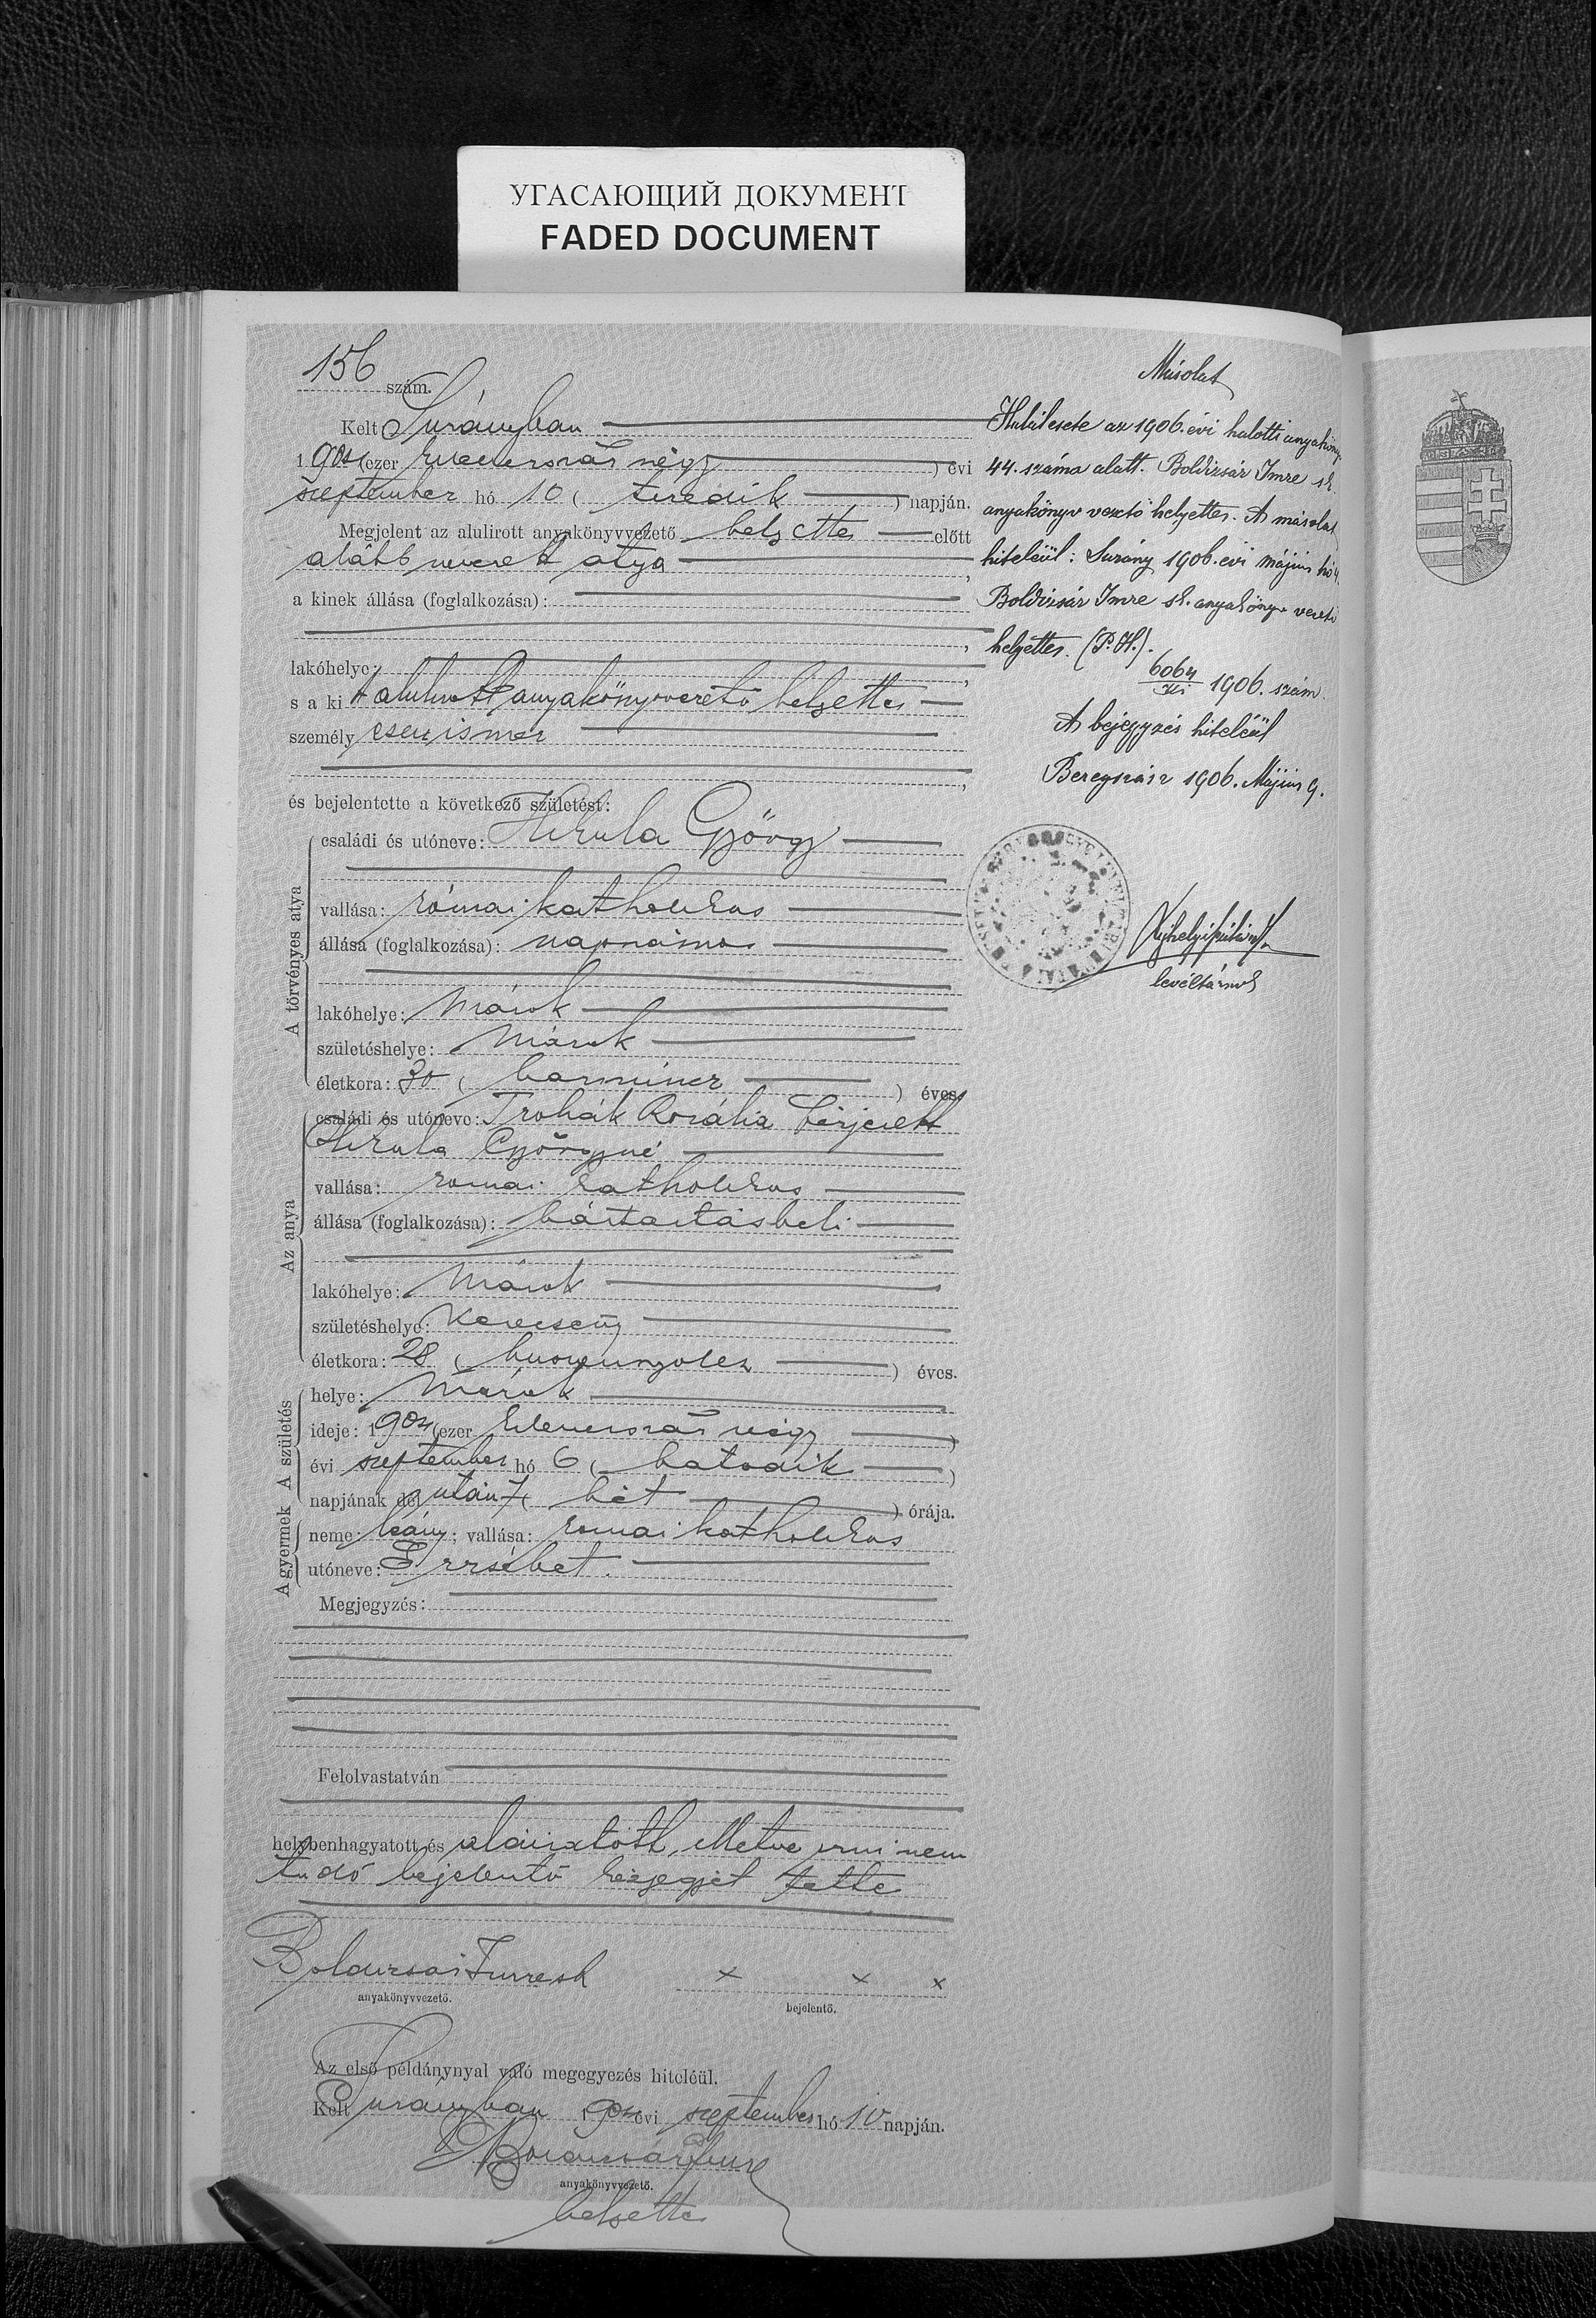 УГАСАЮЩИЙ ДОКУМЕНТ
FADED DOCUMENT
156 szám.
Kelt Surányban
1904 (ezer kilencszáz négy ) évi
szeptember hó 10 ( tizedik ) napján.
Megjelent az alulirott anyakönyvvezető helyettes előtt
alább nevezett atya ,
a kinek állása (foglalkozása):
,
lakóhelye: ,
s a kit alulirott anyakönyvvezető helyettes
személyesen ismer
,
és bejelentette a következő születést:
A törvényes atya
családi és utóneve: György
vallása: római katholikus
állása (foglalkozása): napszámos
lakóhelye: Márok
születéshelye: Márok
életkora: 30 ( harmincz ) éves
Az anya
családi és utóneve: Trohák Rozália férjezett
Györgyné
vallása: romai katholikus
állása (foglalkozása): háztartásbeli
lakóhelye: Márok
születéshelye: Kerecseny
életkora: 28 ( huszonnyolcz ) éves.
A születés
helye: Márok
ideje: 1904 (ezer kilenczszáz négy )
évi szeptember hó 6 ( hatodik )
napjának dél után 7 ( hét ) órája.
A gyermek
neme: leány; vallása: romai katholikus
utóneve: Erzsébet.
Megjegyzés:
Felolvastatván
helybenhagyatott és aláiratott, illetve irni nem
tudó bejelentő kézjegyét tette
Boldizsár Imre sk
anyakönyvvezető.
x x x
bejelentő.
Az első példánynyal való megegyezés hiteléül.
Kelt Surányban 1904 évi szeptember hó 10 napján.
Boldizsár Imre
anyakönyvvezető.
helyettes
Másolat
Halálesete az 1906. évi halotti anyakönyv
44. száma alatt. Boldizsár Imre sk.
anyakönyv vezető helyettes. A másolat
hiteléül: Surány 1906. évi május hó 4.
Boldizsár Imre sk. anyakönyv vezető
helyettes. (P. H.).
6064
1906. szám.
A bejegyzés hiteléül
Beregszász 1906. Május 9.
levéltárnok